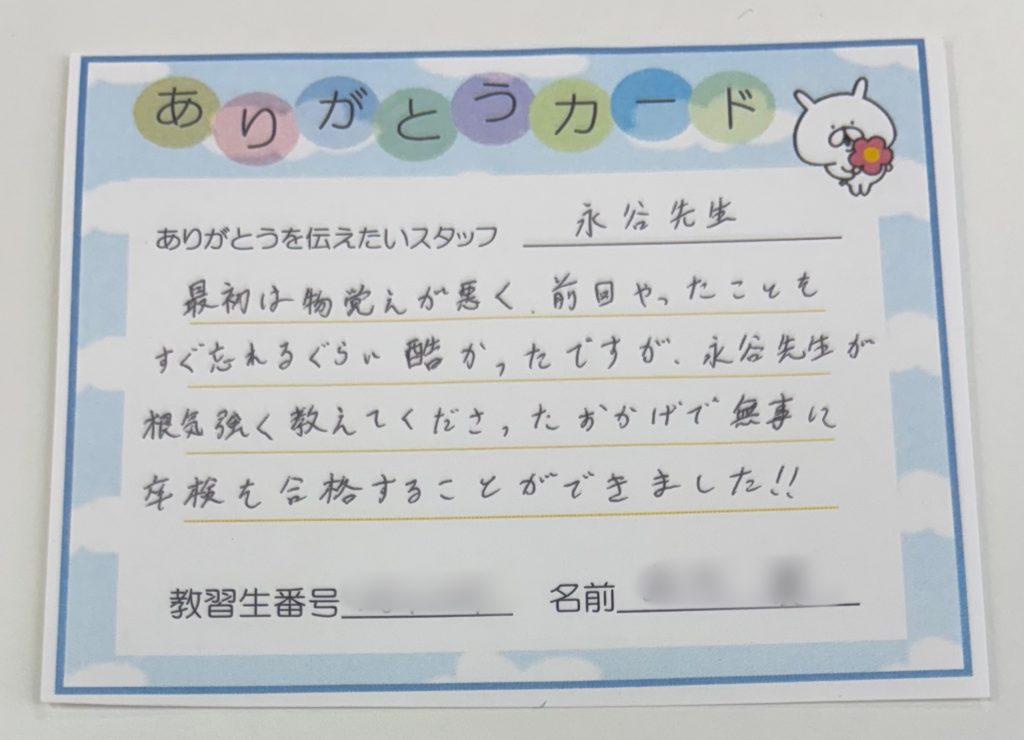 ありがとうカード
ありがとうを伝えたいスタッフ 永谷先生
最初は物覚えが悪く、前回やったことも
すぐ忘れるぐらい酷かったですが、永谷先生が
根気強く教えてくださったおかげで無事に
卒検を合格することができました!!
教習生番号 名前